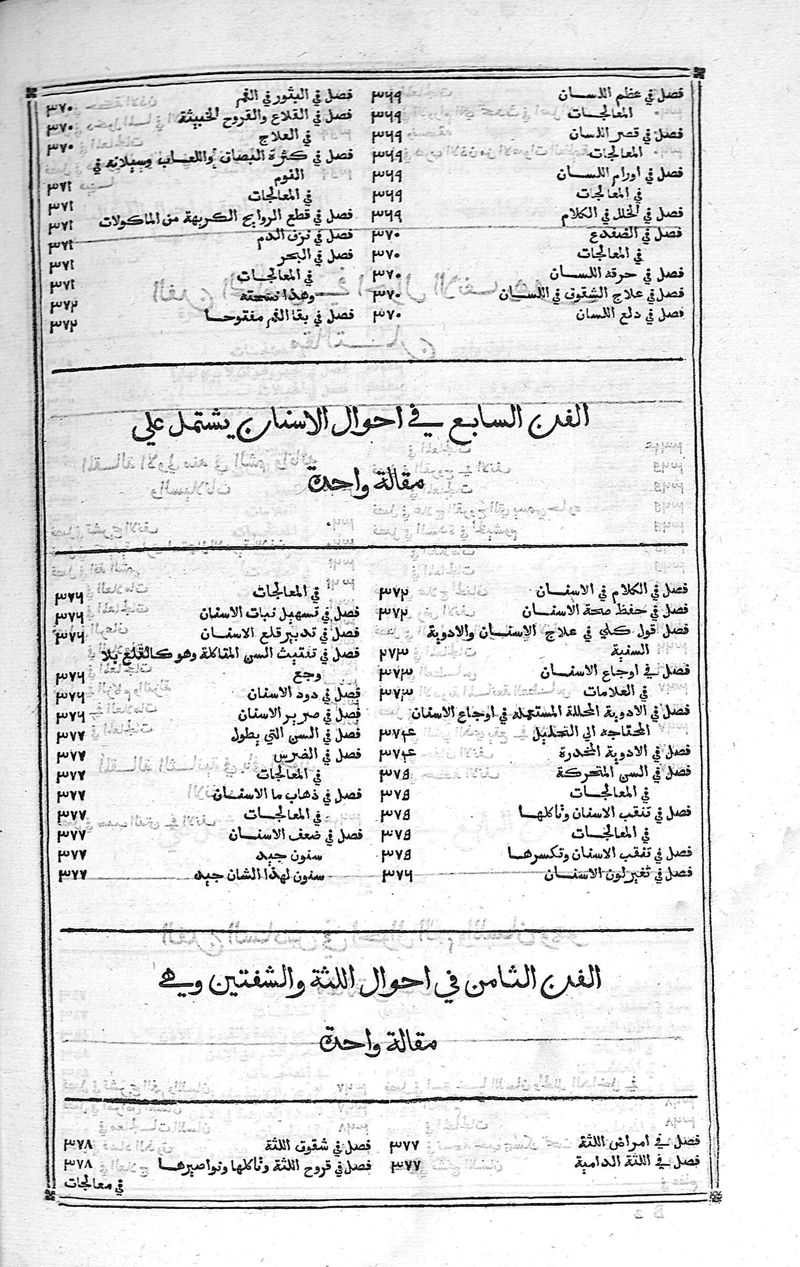 فصل في عظم اللسان ٣٦٩
المعالجات ٣٦٩
فصل في قصر اللسان ٣٦٩
المعالجات ٣٦٩
فصل في اورام اللسان ٣٦٩
في المعالجات ٣٦٩
فصل في الخلل في الكلام ٣٦٩
فصل في الضفدع ٣٧٠
في المعالجات
فصل في حرقة اللسان ٣٧٠
فصل في علاج الشقوق في اللسان ٣٧٠
فصل في دلع اللسان ٣٧٠
فصل في البثور في الفم ٣٧٠
فصل في القلاع والقروح الخبيثة ٣٧٠
في العلاج ٣٧٠
فصل في كثرة البصاق واللعاب وسيلانه في
النوم ٣٧١
في المعالجات ٣٧١
فصل في قطع الروايح الكريهة من الماكولات ٣٧١
فصل في نزف الدم ٣٧١
فصل في البخر ٣٧١
في المعالجات ٣٧١
وهذا نسخته ٣٧٢
فصل في بقا الفم مفتوحا ٣٧٢
الفن السابع في احوال الاسنان يشتمل علي
مقالة واحدة
فصل في الكلام في الاسنان ٣٧٢
فصل في حفظ صحة الاسنان ٣٧٢
فصل قول كلي في علاج الاسنان والادوية
السنية ٢٧٣
فصل في اوجاع الاسنان ٣٧٣
في العلامات ٣٧٣
فصل في الادوية المحللة المستعملة في اوجاع الاسنان
المحتاجه الي التحليل ٣٧٤
فصل في الادوية المخدرة ٣٧٤
فصل في السن المتحركة ٣٧٥
في المعالجات ٣٧٥
فصل في تثقب الاسنان وتاكلها ٣٧٥
في المعالجات ٣٧٥
فصل في تثقب الاسنان وتكسرها ٣٧٥
فصل في تغير لون الاسنان ٣٧٦
في المعالجات ٣٧٦
فصل في تسهيل نبات الاسنان ٣٧٦
فصل في تدبير قلع الاسنان ٣٧٦
فصل في تفتيت السن المتاكلة وهو كالقلع بلا
وجع ٣٧٦
فصل في دود الاسنان ٣٧٦
فصل في صرير الاسنان ٣٧٦
فصل في السن التي يطول ٣٧٧
فصل في الضرس ٣٧٧
في المعالجات ٣٧٧
فصل في ذهاب ما الاسنان ٣٧٧
في المعالجات ٣٧٧
فصل في ضعف الاسنان ٣٧٧
سنون جيد ٣٧٧
سنون لهذا الشان جيد ٣٧٧
الفن الثامن في احوال اللثة والشفتين وهي
مقالة واحدة
فصل في امراض اللثة ٣٧٧
فصل في اللثة الدامية ٣٧٧
فصل في شقوق اللثة ٣٧٨
فصل في قروح اللثة وتاكلها ونواصيرها ٣٧٨
في معالجات
B 2